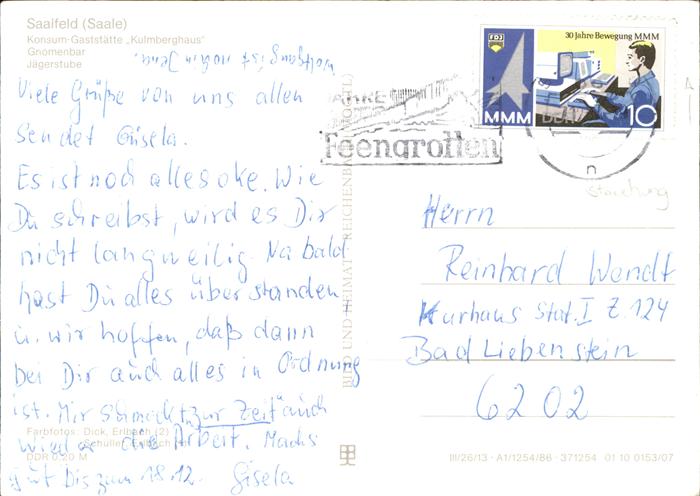 Saalfeld (Saale)
Konsum-Gaststätte „Kulmberghaus"
Gnomenbar
Jägerstube
Wolfgang ist noch in Jena.
Viele Grüße von uns allen
sendet Gisela.
Es ist noch alles oke. Wie
Du schreibst, wird es Dir
nicht langweilig. Na bald
hast Du alles überstanden
u. wir hoffen, daß dann
bei Dir auch alles in Ordnung
ist. Mir schmeckt zur Zeit auch
wieder die Arbeit. Machs
gut bis zum 18.12. Gisela
Farbfotos: Dick, Erlbach (2)
Schüller, Erlbach
DDR 0,20 M
BILD UND HEIMAT REICHENBACH (VOGTL)
Feengrotten
FDJ
MMM
30 Jahre Bewegung MMM
DDR
10
n
Herrn
Reinhard Wendt
Kurhaus Stat. I Z. 124
Bad Liebenstein
6202
III/26/13 · A1/1254/86 · 371254 01 10 0153/07